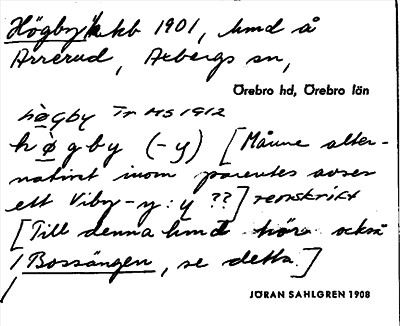 Högby kb 1901, hmd å
Arrerud, Axbergs sn,
Örebro hd, Örebro län
hògby Tr HS 1912
hø̀gby (-y) [Månne alter-
nativet inom parentes avser
ett Viby-y: y ??] renskrift
[Till denna hmd höra också
Bossängen, se detta.]
JÖRAN SAHLGREN 1908